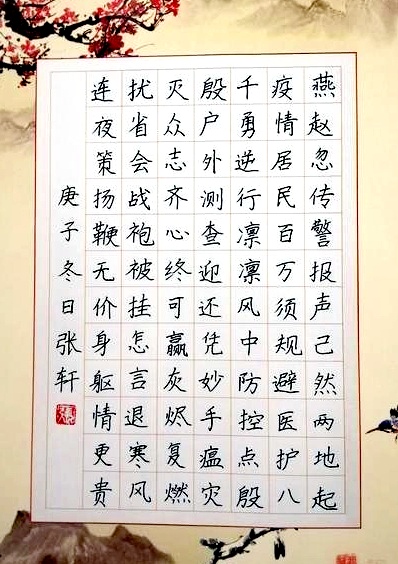 燕赵忽传警报声己然两地起
疫情居民百万须规避医护八
千勇逆行凛凛风中防控点殷
殷户外测查迎还凭妙手瘟灾
灭众志齐心终可赢灰烬复燃
扰省会战袍被挂怎言退寒风
连夜策扬鞭无价身躯情更贵
庚子冬日张轩